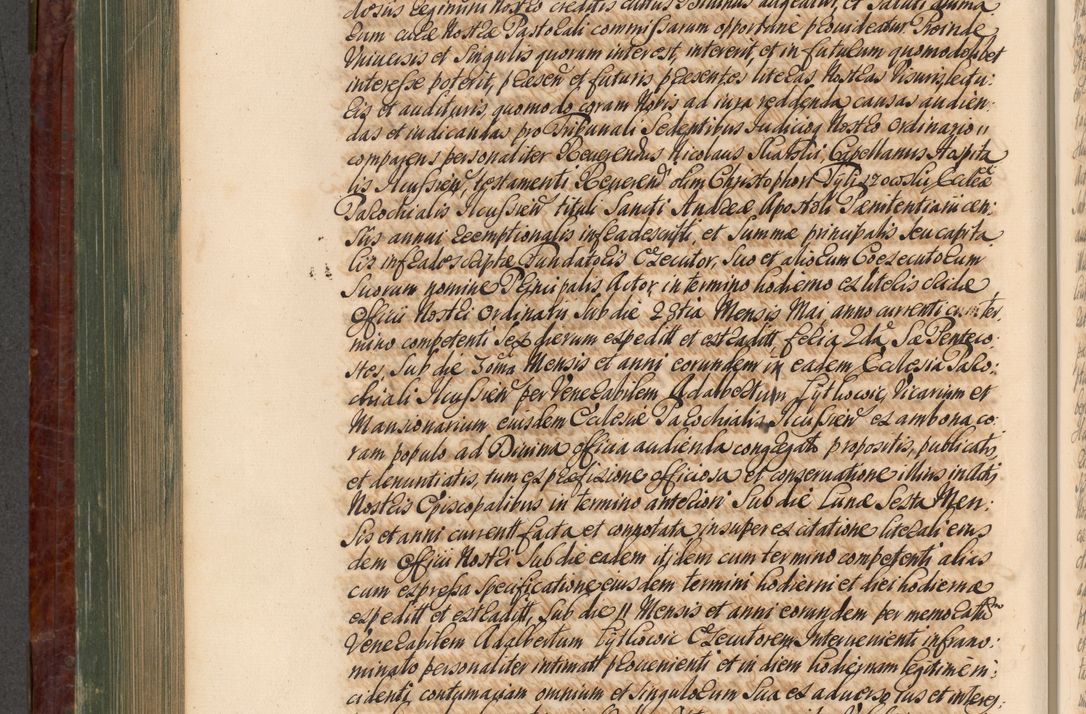 dosus Regimini Nostro creditis cultus Divinus augeatur, et Saluti Anima
rum curæ Nostræ Pastorali commissarum opportune provideatur. Proinde
Universis et Singulis quorum interest, intererit, et in futurum quomodolibet
interesse poterit, præsen: et futuris præsentes literas Nostras Visuris, lectu:
ris et audituris, quomodo coram Nobis ad iura reddenda causas audien
das et iudicandas pro Tribunali Sedentibus Judicioq Nostro Ordinario
comparens personaliter Reverendus Nicolaus Capellanus Hospita
lis testamenti Reverend olim Christophori Eccleæ
Parochialis tituli Sancti Andreæ Apostoli Pænitentiarii cen:
sus annui reemptionalis infrascripti, et Summæ principalis seu capita
lis infradescriptæ Fundatoris Executor, Suo et aliorum Coexecutorum
Suorum nomine Principalis Actor, in termino hodierno ex literis cridæ
Officii Nostri Ordinarii Sub die 23tia Mensis Maii anno currenti cum ter
mino competenti Sex dierum expeditt et extraditt, feria 2da Sæ Penteco
stes, Sub die Mensis et anni eorundem in eadem Ecclesia Paro:
chiali per Venerabilem Adalbertum Vicarium et
Mansionarium eiusdem Ecclesiæ Parochialis ex ambona co
ram populo ad Divina officia audienda congregato propositis, publicatis,
et denuntiatis, tum ex præfixione officiosa et conservatione illius in Actis
Nostris Episcopalibus in termino anteriori Sub die Lunæ Sexta Men:
sis et anni currentt facta et connotata, insuper ex citatione literali eius
dem Officii Nostri Sub die eadem itidem cum termino competenti alias
cum expressa specificatione eiusdem termini hodierni et diei hodiernæ
expeditt et extraditt, Sub die 11 Mensis et anni eorundem per memoratum
Venerabilem Adalbertum Executorem Intervenienti infrano:
minato personaliter intimatt provenienti et in diem hodiernam legitime in:
cidenti, contumaciam omnium et Singulorum Sua ex adverso Jus et interes: